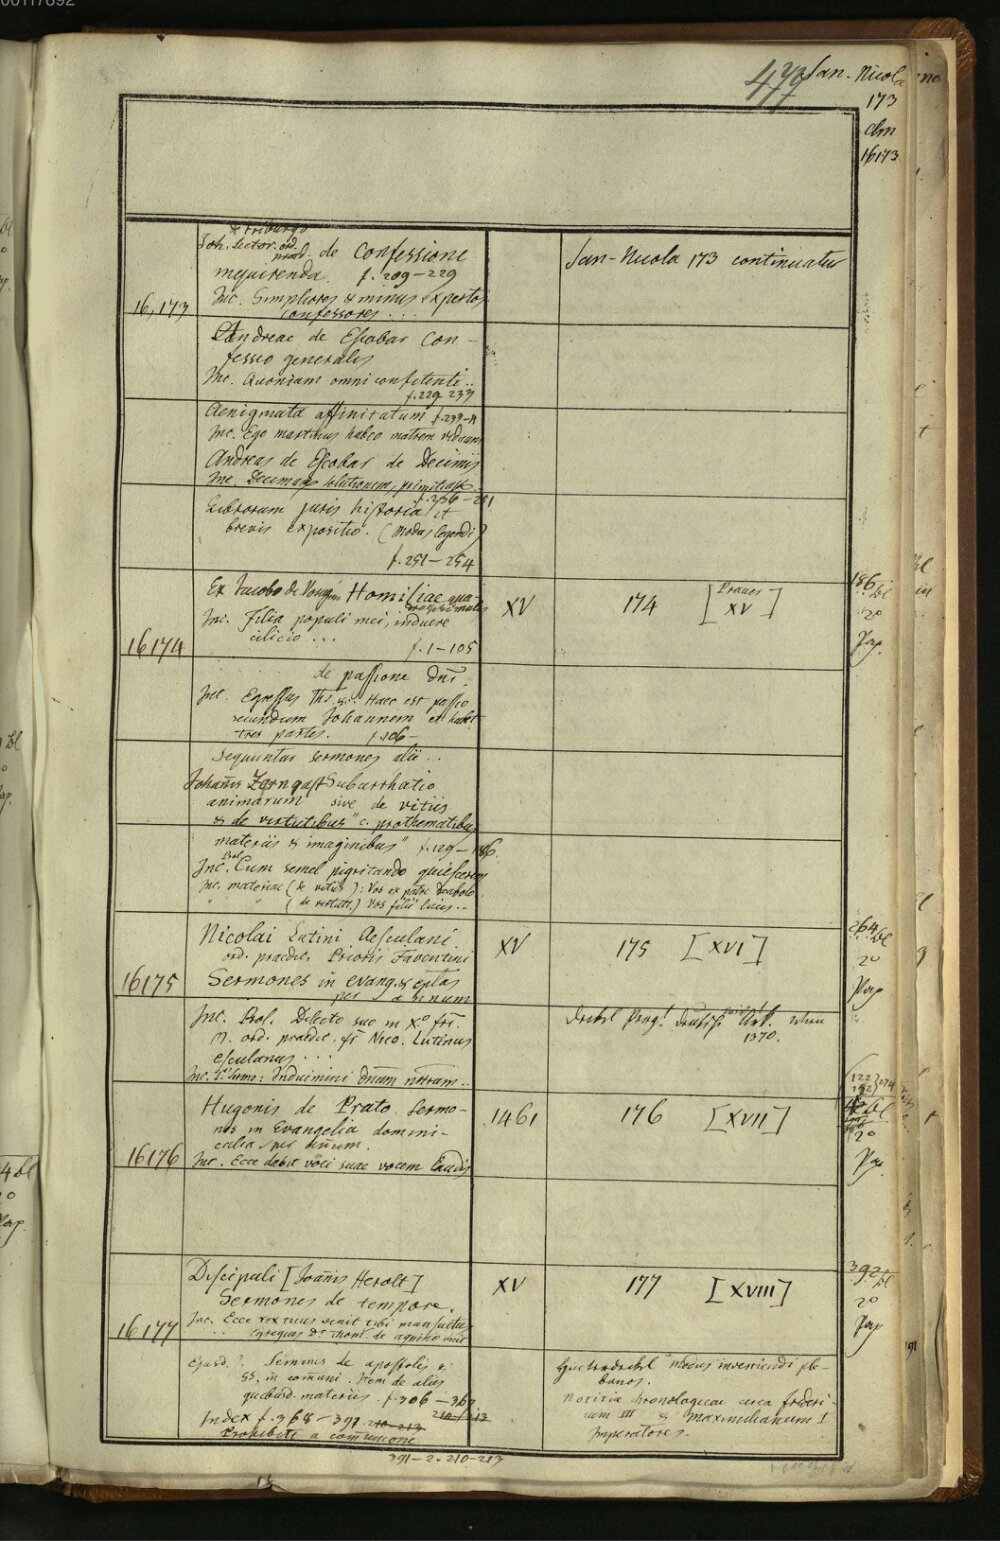 00117892
San-Nicola
173
clm
16173
de Friburgo
Joh. Lector. ord.
praed. de Confessione
inquirenda. f. 209-229
Inc. Simpliores & minus expertos
16,173 confessores . . .
San-Nicola 173 continuatur
Andreae de Escobar Con-
fessio generalis
Inc. Quoniam omni confitenti ..
f. 229 233
Aenigmata affinitatum f. 233-
Inc. Ego martinus habeo matrem
Andreas de Escobar de Decimis
Inc. Decimas solutionem, primitias
f. 236-251
Librorum juris historia et
brevis expositio. (Modus legendi)
f. 251-254
Ex Jacobo de Voragin Homiliae qua-
dragesimales
Inc. Filia populi mei, induere
cilicio . . .
f. 1-105
16174
XV
174 [Praues XV]
186 bl
2o
Pap.
de passione dni.
Inc. Egressus Ihs &c. Haec est passio
secundum Johannem et habet
tres partes. f. 106-
Sequuntur sermones alii . .
Johannis Zarngast Subarrhatio
animarum sive de vitiis
& de virtutibus" c. prothematibus
materiis & imaginibus" f. 129-186.
Prol.
Inc. Cum semel pigritando quiescerem
Inc. materiae (de vitiis): Vos ex patre diabolo
" " (de virtutt.) Vos filii lucis ..
Nicolai Lutini Aesculani
ord. praedic. Prioris Faventini
Sermones in evang. & eplas
per annum
16175
XV
175 [XVI]
264 bl
2o
Pap
Inc. Prol. Dilecto suo in Xo fri.
N. ord. praedic. fr Nico. Lutinus
esculanus . . .
Inc. 1. Sermo: Induimini dnum nostrum ..
1370.
Hugonis de Prato Sermo-
nes in Evangelia domini-
calia per annum.
Inc. Ecce dabit voci suae vocem
16176
1461
176 [XVII]
2o
Pap
Discipuli [Joannis Herolt]
Sermones de tempore.
Inc. Ecce rex tuus venit tibi mansuetus
16177
XV
177 [XVIII]
392 bl
2o
Pap
Ejusd.? Sermones de apostolis &
SS. in comuni. Item de aliis
quibusd. materiis. f. 306-367
Index f. 368-391 210-213
Prohibiti a comunione
391-2. 210-213
modus inveniendi ple-
banos.
Notitiae chronologicae circa Frideri-
cum III & Maximilianum I
Imperatores.